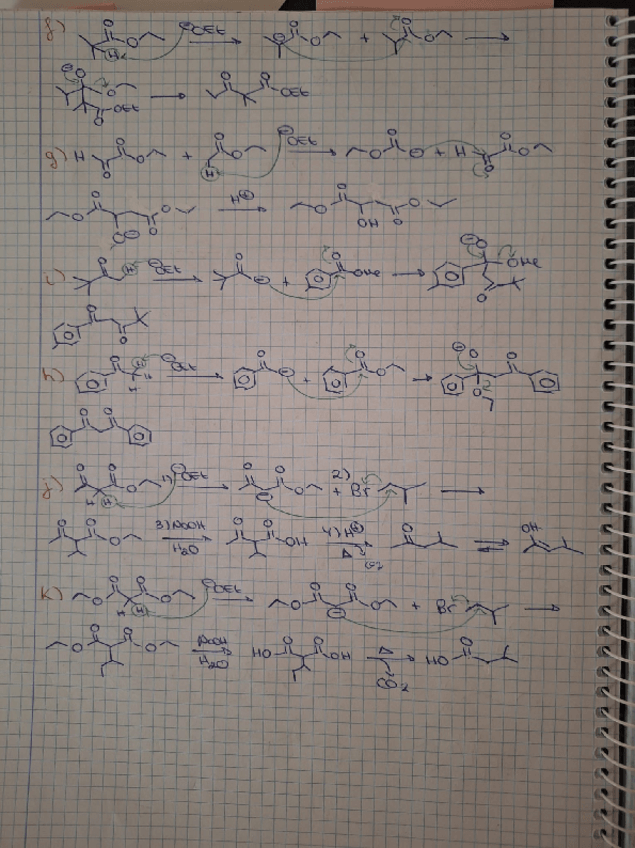 f) O O H ⊖OEt O O + O O
⊖O O OEt O O OEt
g) H O O + O O H ⊖OEt O O ⊖ + H O O
O O O O O⊖ H⊕ O O OH O O
i) O H ⊖OEt O ⊖ + O OMe ⊖O OMe O
O O
h) O H H ⊖OEt O ⊖ + O O ⊖O O O
O O
j) O O O H H 1) ⊖OEt O O O ⊖ 2) + Br
O O O 3) NaOH H₂O O O OH 4) H⊕ Δ CO₂ O OH
k) O O O O H H ⊖OEt O O O O ⊖ + Br
O O O O NaOH H₂O HO O O OH Δ CO₂ HO O